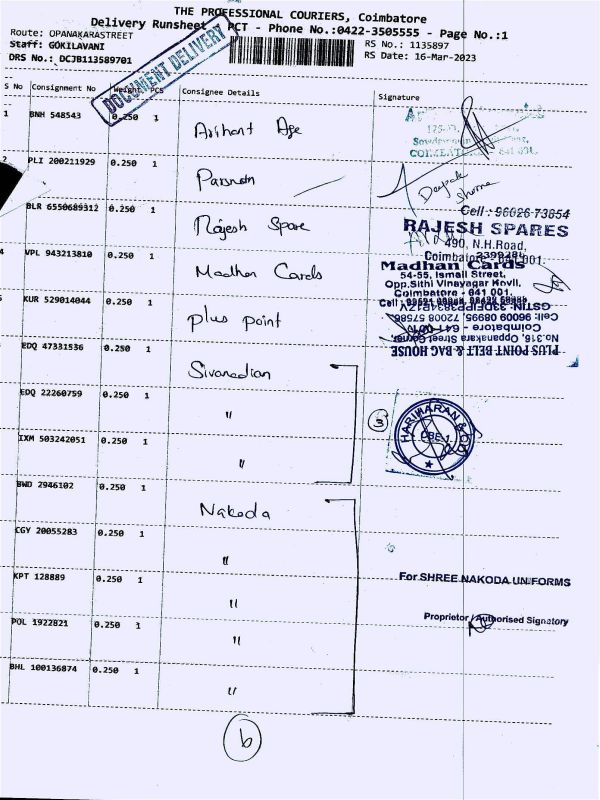 THE PROFESSIONAL COURIERS, Coimbatore
Delivery Runsheet PCT - Phone No.:0422-3505555 - Page No.:1
Route: OPANAKARASTREET
RS No.: 1135897
Staff: GOKILAVANI
RS Date: 16-Mar-2023
DRS No.: DCJB113589701
DOCUMENT DELIVERY
S No Consignment No Weight PCS Consignee Details Signature
1 BNH 548543 0.250 1 Arihant Age
2 PLI 200211929 0.250 1 Parsnath
Deepak
Sharma
BLR 6550689312 0.250 1 Rajesh Spare
Cell : 96026 73654
RAJESH SPARES
490, N.H.Road,
Coimbatore - 641 001.
4 VPL 943213810 0.250 1 Madhan Cards
Madhan Cards
54-55, Ismail Street,
Opp.Sithi Vinayagar Kovil,
Coimbatore - 641 001.
5 KUR 529014044 0.250 1 plus point
PLUS POINT BELT & BAG HOUSE
No.316, Oppanakara Street Corner,
Coimbatore - 641 001.
Cell: 96009 08995, 72008 57586
EDQ 47331536 0.250 1 Sivanedian
EDQ 22260759 0.250 1 "
3
HARIHARAN & CO
CBE-1
IXM 503242051 0.250 1 "
BWD 2946102 0.250 1 Nakoda
CGY 20055283 0.250 1 "
KPT 128889 0.250 1 "
For SHREE NAKODA UNIFORMS
POL 1922821 0.250 1 "
Proprietor / Authorised Signatory
BHL 100136874 0.250 1 "
6